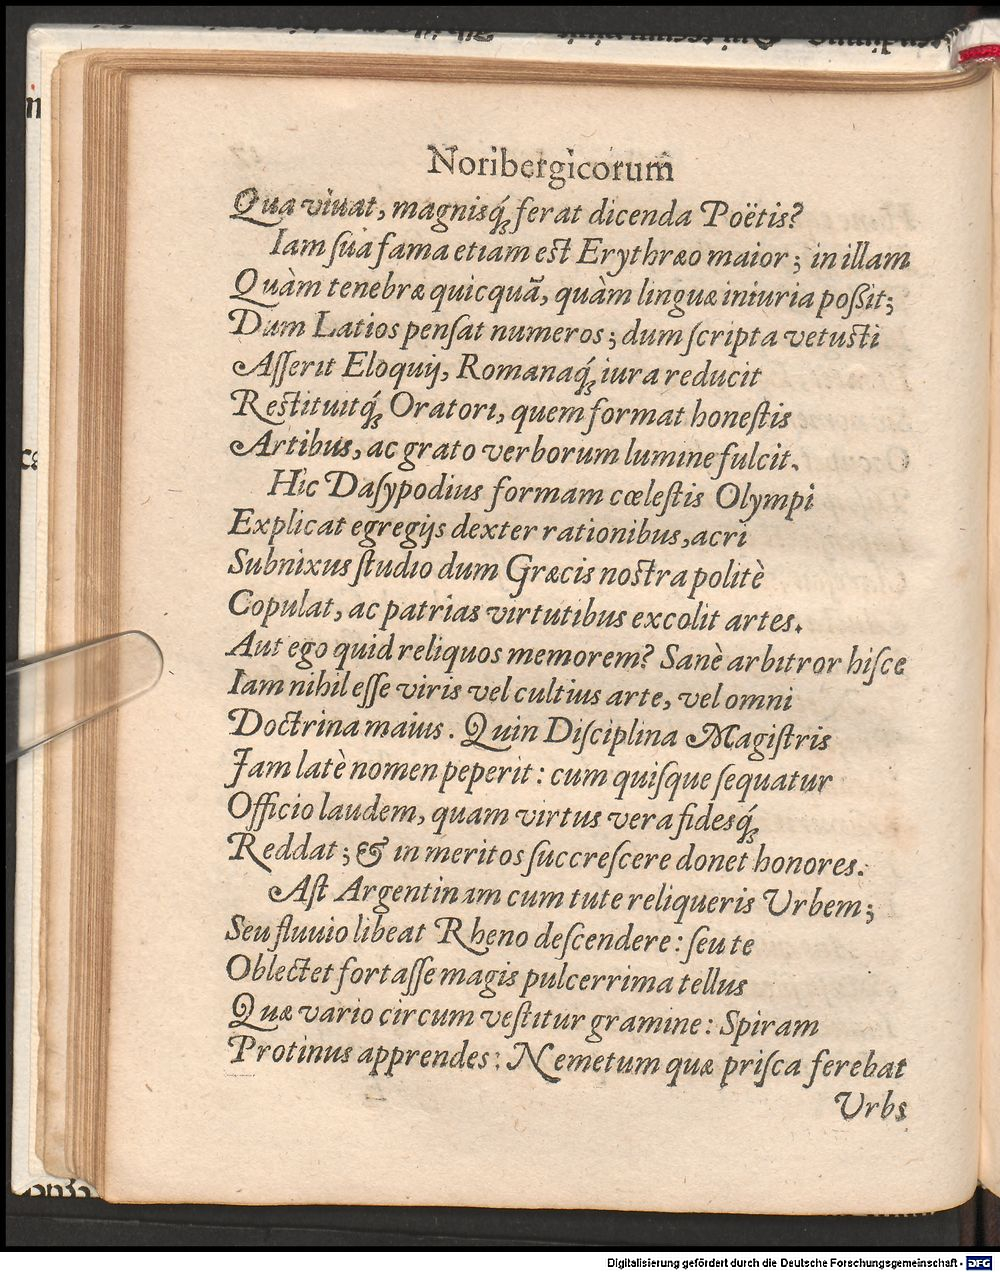 Noribergicorum
Qua viuat, magnisq́; ferat dicenda Poëtis?
Iam ſua fama etiam est Erythræo maior; in illam
Quàm tenebræ quicquã, quàm linguæ iniuria poßit;
Dum Latios penſat numeros; dum ſcripta vetusti
Aſſerit Eloquij, Romanaq́; iura reducit
Restituitq́; Oratori, quem format honeſtis
Artibus, ac grato verborum lumine fulcit.
Hic Daſypodius formam cœleſtis Olympi
Explicat egregijs dexter rationibus, acri
Subnixus ſtudio dum Græcis nostra politè
Copulat, ac patrias virtutibus excolit artes.
Aut ego quid reliquos memorem? Sanè arbitror hiſce
Iam nihil eſſe viris vel cultius arte, vel omni
Doctrina maius. Quin Diſciplina Magiſtris
Jam latè nomen peperit: cum quiſque ſequatur
Officio laudem, quam virtus vera fidesq́;
Reddat; & in meritos ſuccreſcere donet honores.
Aſt Argentinam cum tute reliqueris Vrbem;
Seu fluuio libeat Rheno deſcendere: ſeu te
Oblectet fortaſſe magis pulcerrima tellus
Quæ vario circum veſtitur gramine: Spiram
Protinus apprendes: Nemetum quæ priſca ferebat
Vrbs
Digitalisierung gefördert durch die Deutsche Forschungsgemeinschaft - DFG